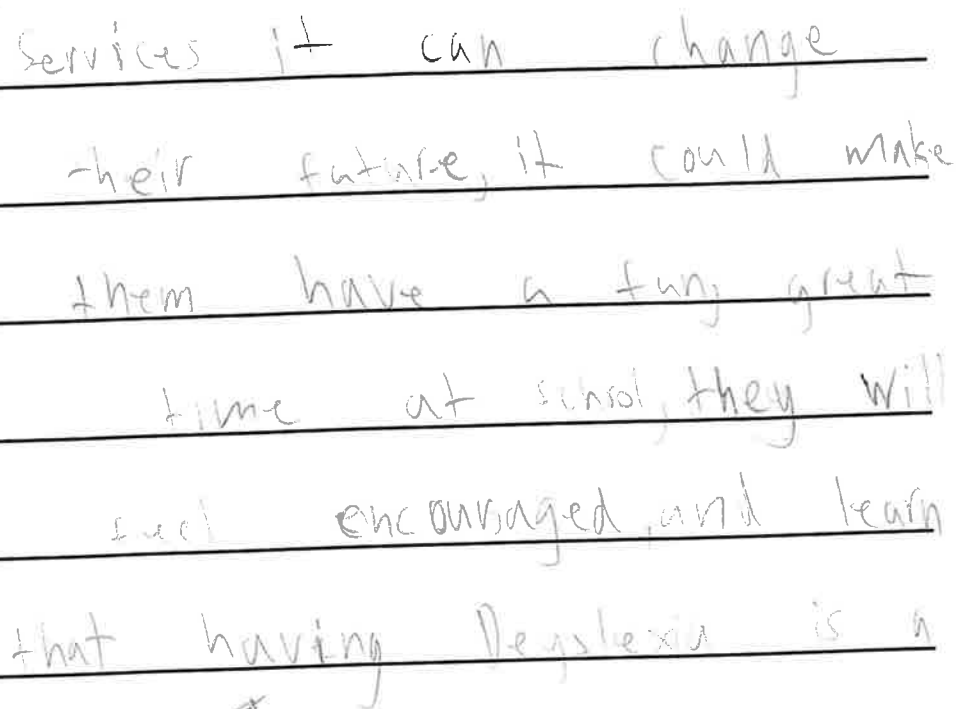 services it can change
their future, it could make
them have a fun, great
time at school, they will
feel encouraged, and learn
that having Deyslexia is a